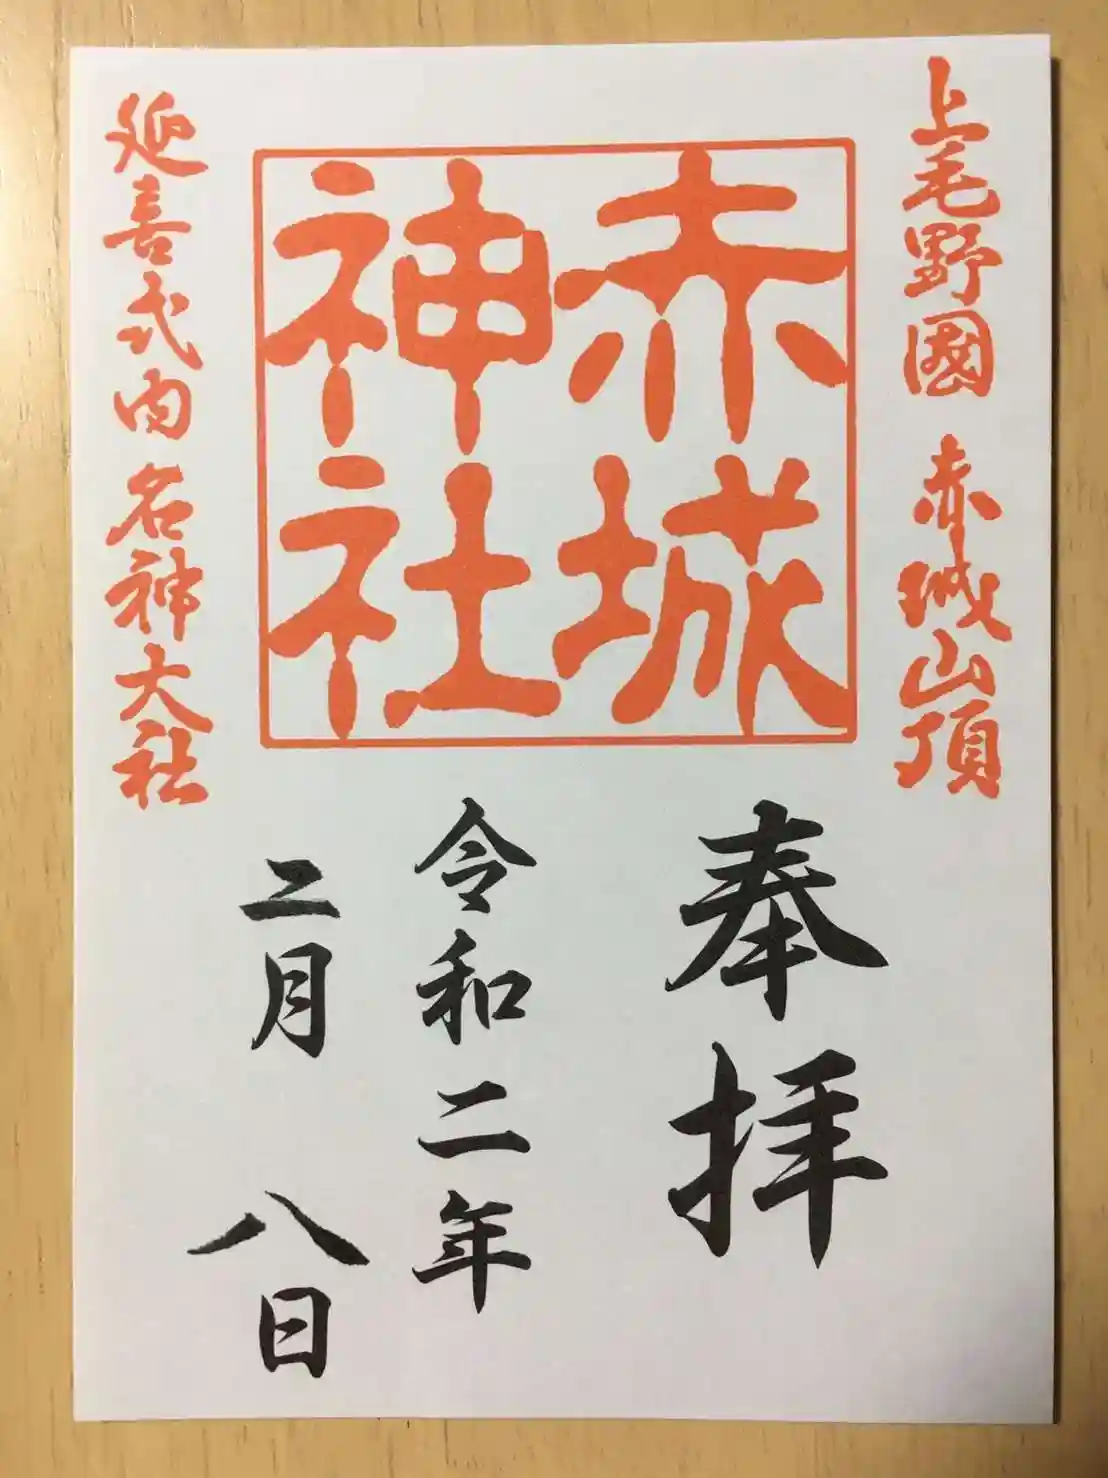 上毛野國 赤城山頂
赤城
神社
延喜式内 名神大社
奉拝
令和二年
二月 八日